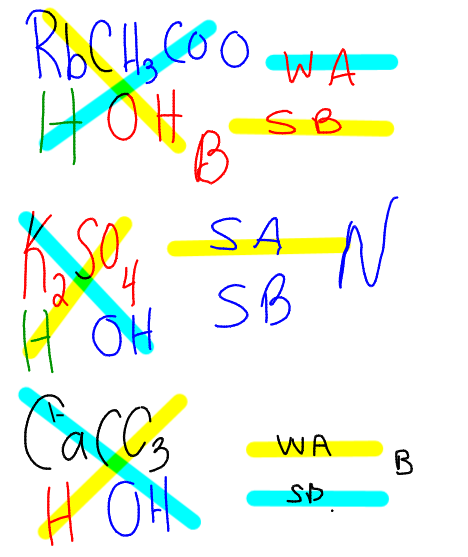 RbCH3COO WA
H OH SB
B
K2SO4 SA N
H OH SB
WA B
H OH SB.